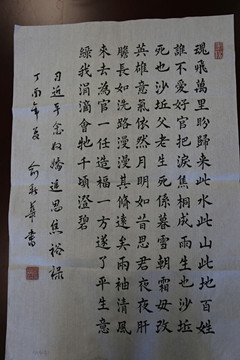 魂飛萬里盼歸來此水此山此地百姓
誰不愛好官把淚焦桐成雨生也沙坵
死也沙坵父老生死係暮雪朝霜毋改
英雄意氣依然月明如昔思君夜夜肝
膽長如洗路漫漫其脩遠矣兩袖清風
來去為官一任造福一方遂了平生意
綠我涓滴會牠千頃澄碧
习近平念奴嬌追思焦裕祿
丁酉年夏 俞秋華書